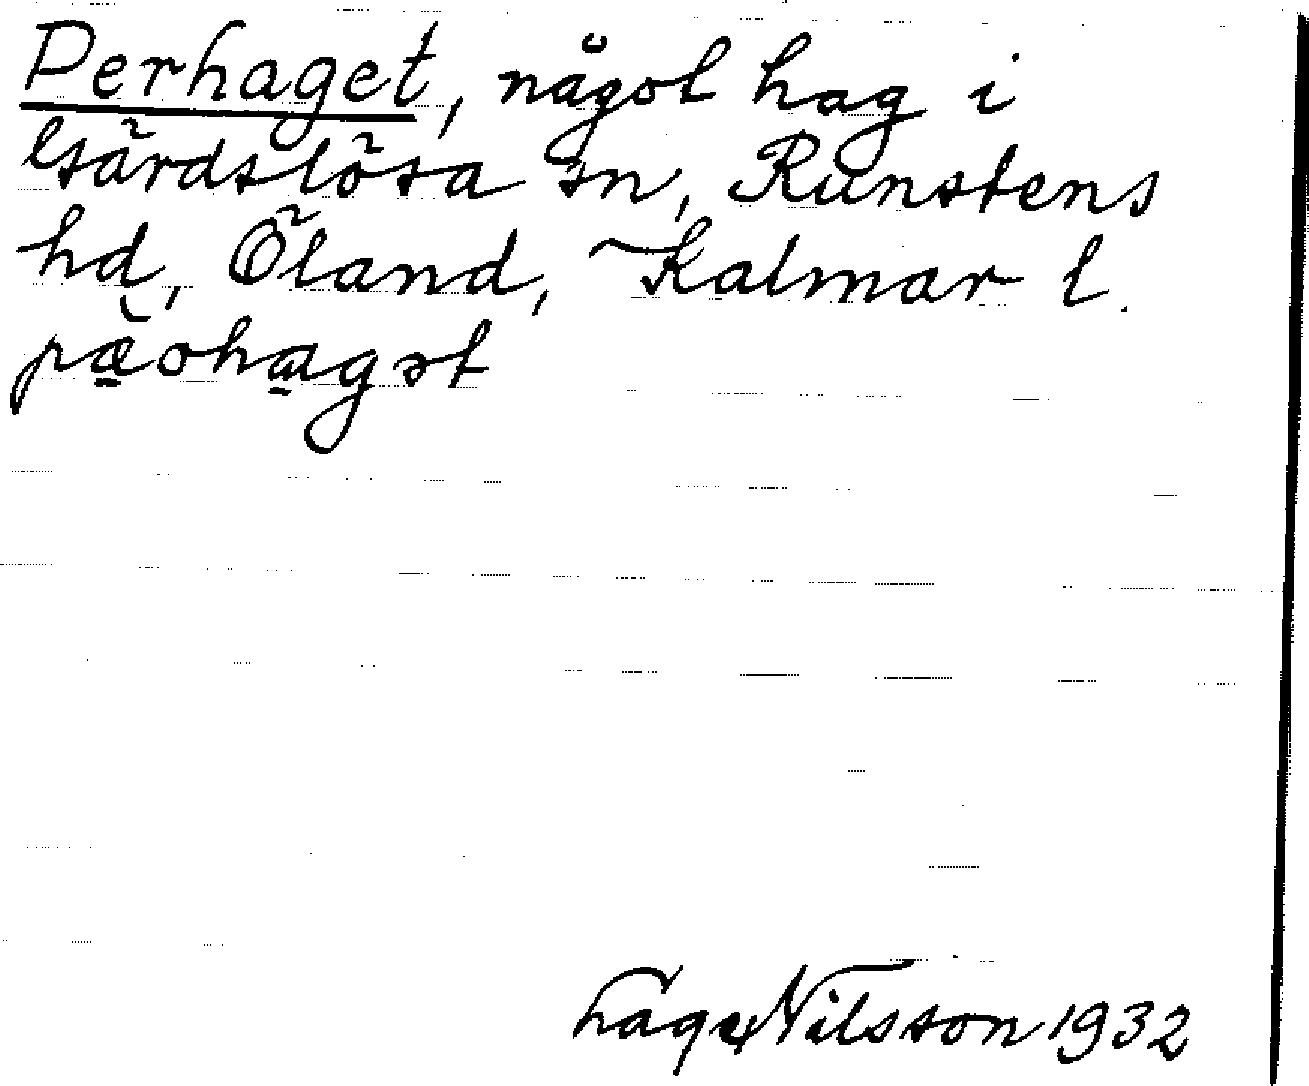 Perhaget, något hag i
Gärdslösa sn, Runstens
hd, Öland, Kalmar l.
pæ̠rha̠gət
Tage Nilsson 1932